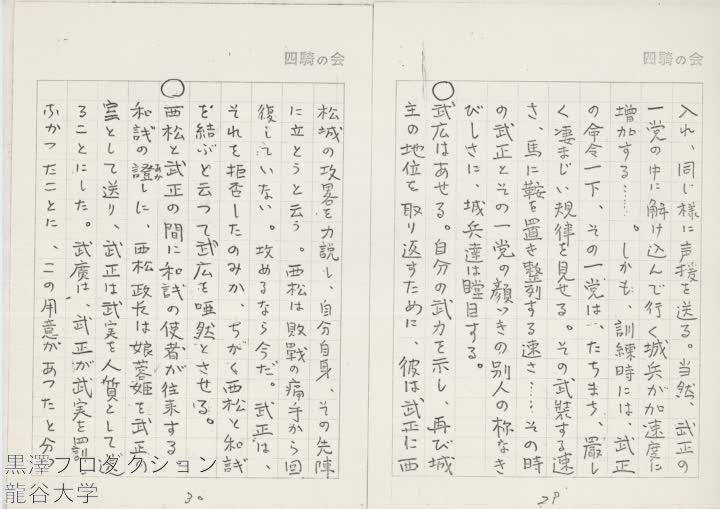 四騎の会
入れ、同じ様に声援を送る。当然、武正の
一党の中に解け込んで行く城兵が加速度に
増加する……。しかも、訓練時には、武正
の命令一下、その一党は、たちまち、厳し
く凄まじい規律を見せる。その武装する速
さ、馬に鞍を置き整列する速さ……その時
の武正とその一党の顔いきの別人の称なき
びしさに、城兵達は瞠目する。
○武広はあせる。自分の武力を示し、再び城
主の地位を取り返すために、彼は武正に西
29
四騎の会
松城の攻畧を力説し、自分自身、その先陣
に立とうと云う。西松は敗戰の痛手から回
復していない。攻めるなら今だ。武正は、
それを拒否したのみか、ちがく西松と和議
を結ぶと云つて武広を唖然とさせる。
○西松と武正の間に和議の使者が往来する。
和議の證しに、西松政たは娘蓉姫を武正の
あか
室として送り、武正は武実を人質として送
ることにした。武廣は、武正が武実を
ふかつたことに、この用意があつたと分
30
黒澤プロダクション
龍谷大学